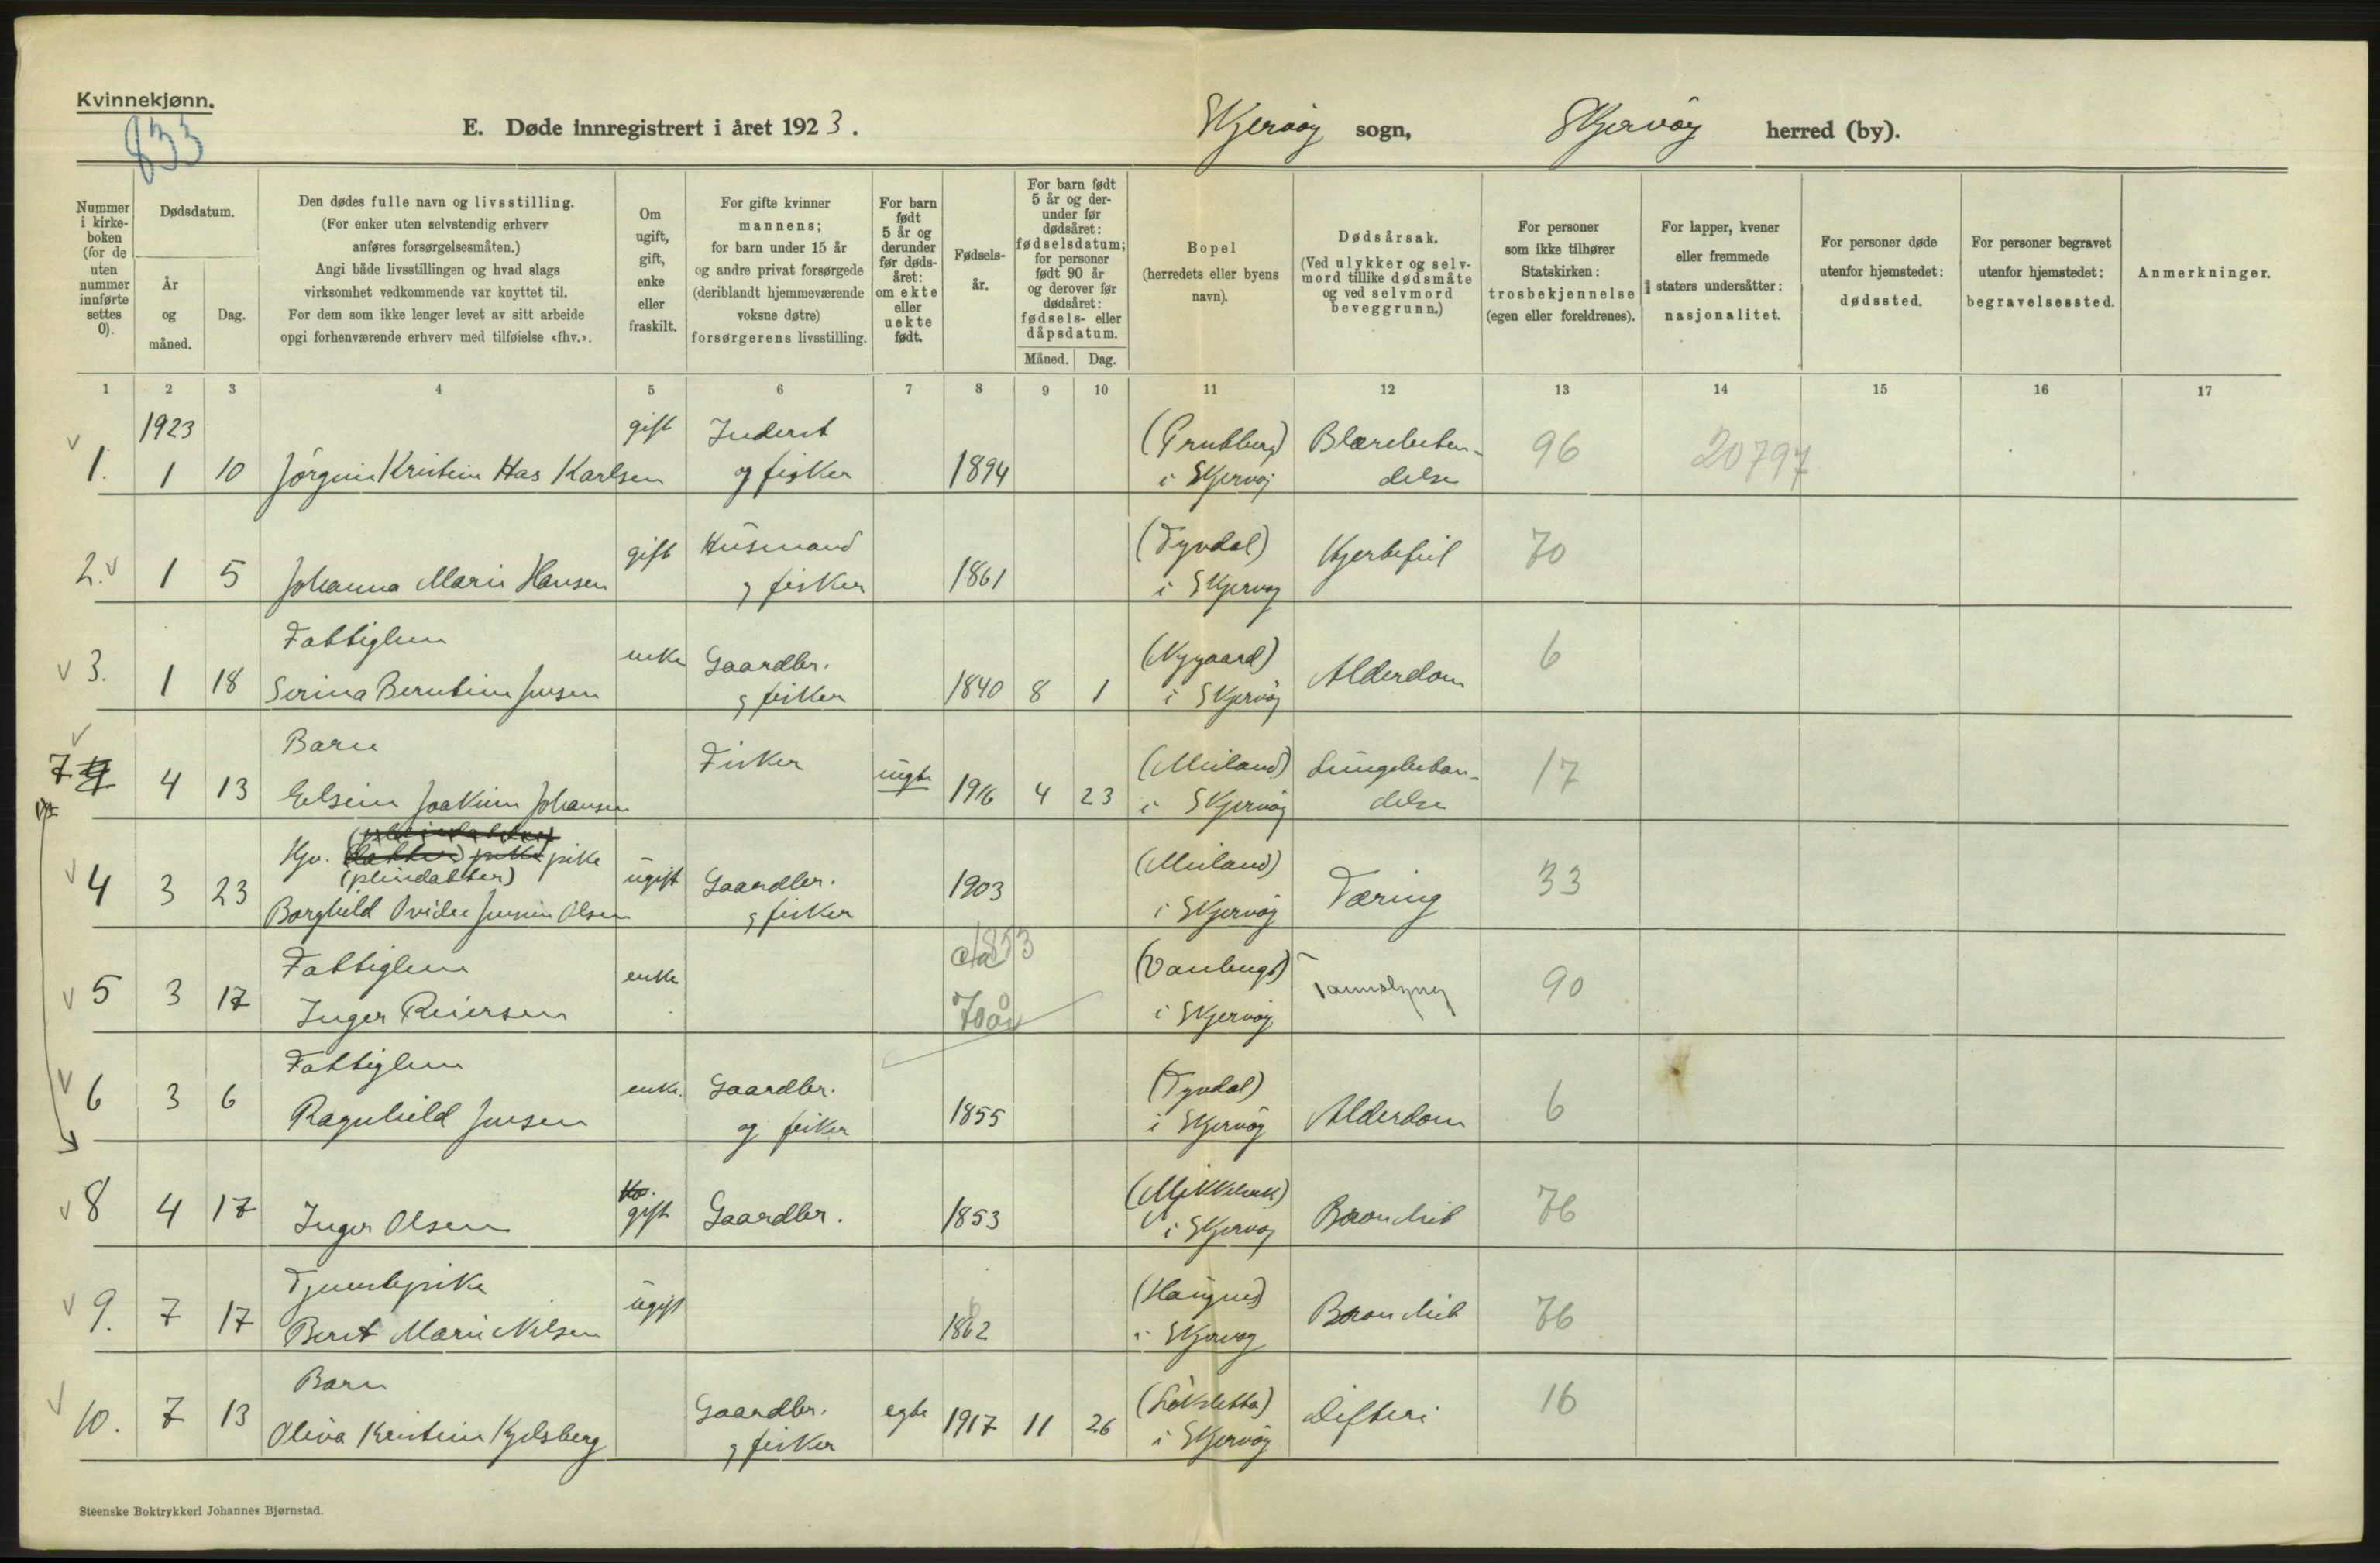 Kvinnekjønn.
833
E. Døde innregistrert i året 1923. Skjervøy sogn, Skjervøy herred (by).
Nummer i kirke-boken (for de uten nummer innførte settes 0).
Dødsdatum.
År og måned.
Dag.
Den dødes fulle navn og livsstilling.
(For enker uten selvstendig erhverv
anføres forsørgelsesmåten.)
Angi både livsstillingen og hvad slags
virksomhet vedkommende var knyttet til.
For dem som ikke lenger levet av sitt arbeide
opgi forhenværende erhverv med tilføielse «fhv.».
Om ugift, gift, enke eller fraskilt.
For gifte kvinner
mannens;
for barn under 15 år
og andre privat forsørgede
(deriblandt hjemmeværende
voksne døtre)
forsørgerens livsstilling.
For barn født 5 år og derunder før døds-året: om ekte eller uekte født.
Fødsels-år.
For barn født 5 år og der-under før dødsåret: fødselsdatum; for personer født 90 år og derover før dødsåret: fødsels- eller dåpsdatum.
Måned. Dag.
Bopel
(herredets eller byens
navn).
Dødsårsak.
(Ved ulykker og selv-
mord tillike dødsmåte
og ved selvmord
beveggrunn.)
For personer
som ikke tilhører
Statskirken:
trosbekjennelse
(egen eller foreldrenes).
For lapper, kvener
eller fremmede
staters undersåtter:
nasjonalitet.
For personer døde
utenfor hjemstedet:
dødssted.
For personer begravet
utenfor hjemstedet:
begravelsessted.
Anmerkninger.
1 2 3 4 5 6 7 8 9 10 11 12 13 14 15 16 17
1923 gift Inderst (Grubberg) Blærebeten-
1. 1 10 Jörgine Kristine Has Karlsen og fisker 1894 i Skjervöy delse 96 20797
gift Husmand (Tyvdal)
2. 1 5 Johanna Marie Hansen og fisker 1861 i Skjervöy Hjertefeil 70
Fattiglem enke Gaardbr. (Nygaard)
3. 1 18 Serina Berntine Jensen og fisker 1840 8 1 i Skjervöy Alderdom 6
Barn Fisker uegte (Meiland) Lungebeten-
7 4 13 Elsine Joakime Johansen 1916 4 23 i Skjervöy delse 17
Hjv. pike
(pleiedatter) ugift Gaardbr. (Meiland)
4 3 23 Borghild Ovidie Jensine Olsen og fisker 1903 i Skjervöy Tæring 33
Fattiglem enke cta 1853 (Vanbugt)
5 3 17 Inger Reiersen 70 år i Skjervöy 90
Fattiglem enke. Gaardbr. (Tyvdal)
6 3 6 Ragnhild Jensen og fisker 1855 i Skjervöy Alderdom 6
8 4 17 Inger Olsen gift Gaardbr. 1853 i Skjervöy Bronchit 76
Tjenestepike ugift (Haugnes)
9. 7 17 Berit Marie Nilsen 1862 i Skjervöy Bronchit 76
Barn Gaardbr. egte (Løkslette)
10. 7 13 Oliva Kristine Kjelsberg og fisker 1917 11 26 i Skjervöy Difteri 16
Steenske Boktrykkeri Johannes Bjørnstad.